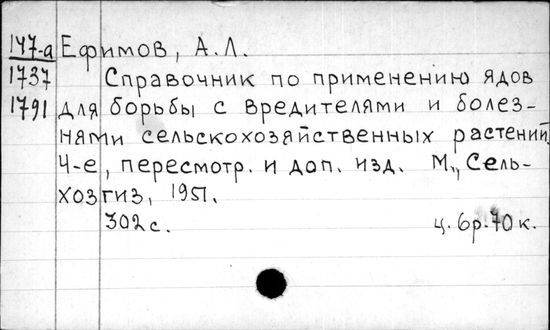 147-а Ефимов, А.Л.
1737 Справочник по применению ядов
1791 для борьбы с вредителями и болез-
нями сельскохозяйственных растений.
4-е, пересмотр. и доп. изд. М., Сель-
хозгиз, 1951.
302 с. ц. 6р. 70 к.